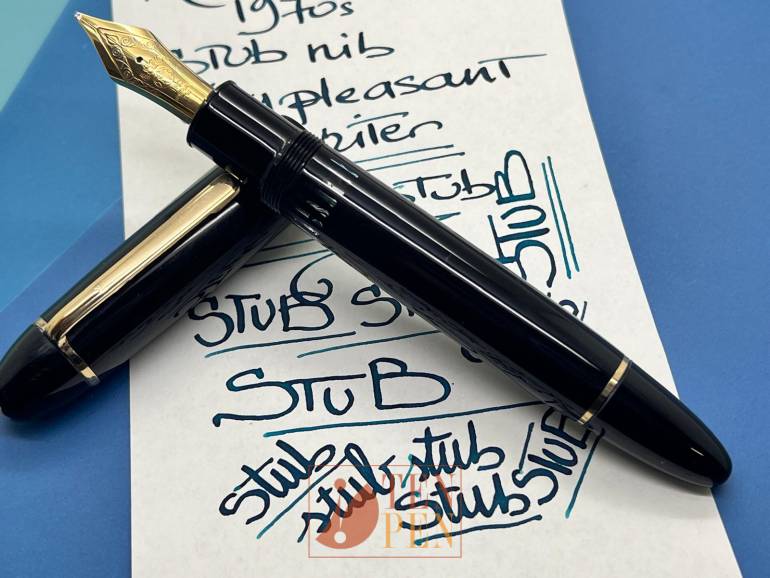 1970s
Stub nib
pleasant
writer
Stub
STUB
STUB
STUB
stub
stub
stub
Stub
STUB
TEN
PEN